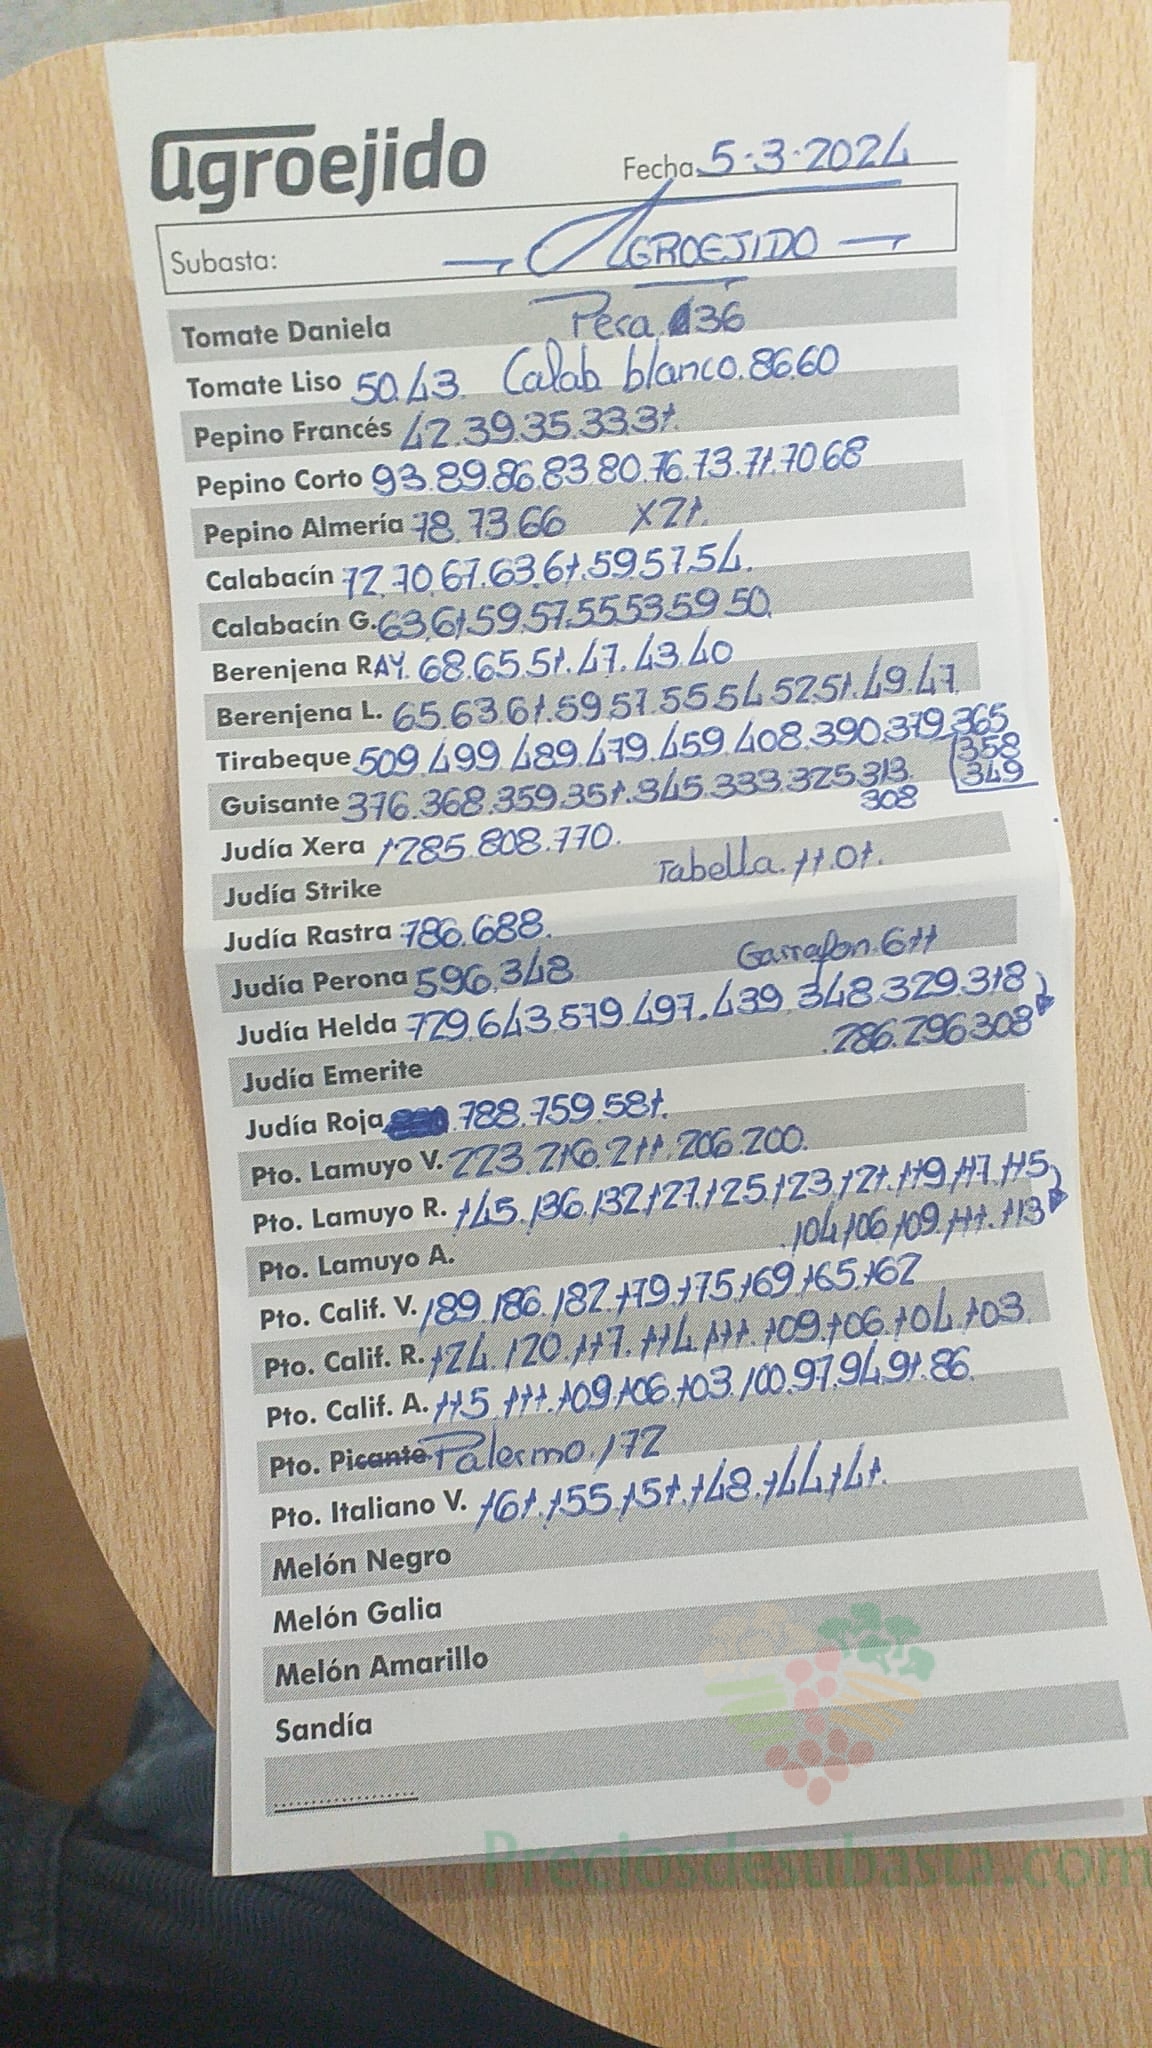 agroejido
Fecha 5-3-2024
Subasta: — AGROEJIDO —
Tomate Daniela Pera 36
Tomate Liso 50.43. Calab blanco.86.60
Pepino Francés 42.39.35.33.31.
Pepino Corto 93.89.86.83.80.76.73.71.70.68
Pepino Almería 78.73.66 X21.
Calabacín 72.70.67.63.61.59.57.54.
Calabacín G. 63.61.59.57.55.53.59.50.
Berenjena RAY. 68.65.51.47.43.40
Berenjena L. 65.63.61.59.57.55.54.52.51.49.47.
Tirabeque 509.499.489.479.459.408.390.379.365
358
349
Guisante 376.368.359.351.345.333.325.313.
308
Judía Xera 1285.808.770.
Judía Strike Tabella.1101.
Judía Rastra 786.688.
Judía Perona 596.348 Garrafon.611
Judía Helda 729.643.579.497.439.348.329.318
.286.296.308
Judía Emerite
Judía Roja .788.759.581.
Pto. Lamuyo V. 223.216.211.206.200.
Pto. Lamuyo R. 145.136.132.127.125.123.121.119.117.115
.104.106.109.111.113
Pto. Lamuyo A.
Pto. Calif. V. 189.186.182.179.175.169.165.162
Pto. Calif. R. 124.120.117.114.111.109.106.104.103.
Pto. Calif. A. 115.111.109.106.103.100.97.94.91.86.
Pto. Picante Palermo.172
Pto. Italiano V. 161.155.151.148.144.141.
Melón Negro
Melón Galia
Melón Amarillo
Sandía
Preciosdesubasta.com